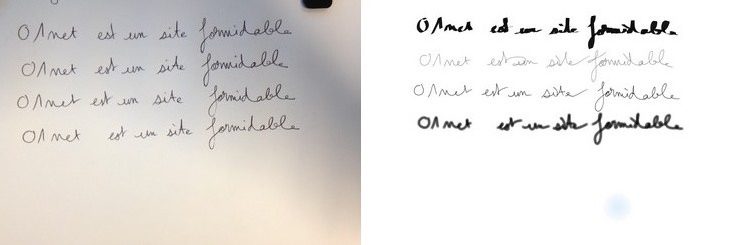 01net est un site formidable
01net est un site formidable
01net est un site formidable
01net est un site formidable
01net est un site formidable
01net est un site formidable
01net est un site formidable
01net est un site formidable